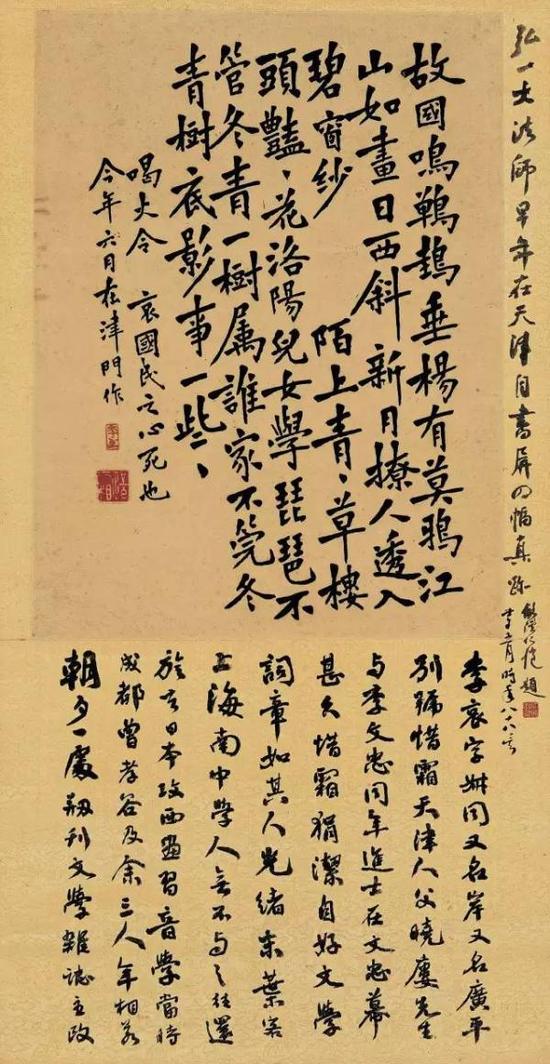 弘一大法師早年在天津自書屏四幅真跡
題
時年八十八
故國鳴鷤鵊垂楊有莫鴉江
山如畫日西斜新月撩人透入
碧窗紗陌上青、草樓
頭艷、花洛陽兒女學琵琶不
管冬青一樹属誰家不管冬
青樹底影事一些、
喝火令哀國民之心死也
今年六月在津門作
李哀字叔同又名岸又名廣平
別號惜霜天津人父曉廔先生
与李文忠同年進士在文忠幕
甚久惜霜狷潔自好文學
詞章如其人光緒末葉客
上海南中學人無不与之往還
旋去日本攻西畫習音學當時
成都曾孝谷及余三人年相若
朝夕一處刱刊文學雜誌主政